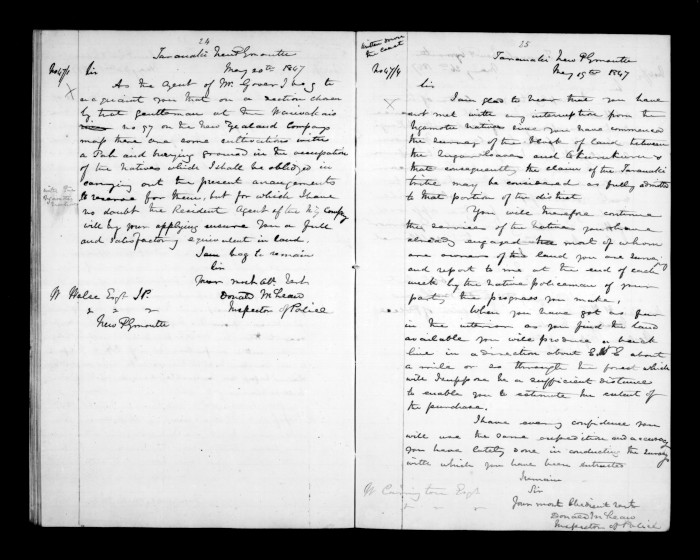 24
Taranaki New Plymouth
May 20th 1847
No 47/1
Sir
As the Agent of Mr. Gover I beg to
acquaint you that on a section chosen
by that gentleman at the Waiwakaio
No 97 on the New Zealand Company
map there are some cultivations with
a Pah and burying ground in the occupation
of the Natives which I shall be obliged in
carrying out the present arrangements
to reserve for them, but for which I have
no doubt the Resident Agent of the NZ Compy
will by your applying ensure you a full
and satisfactory equivalent in land.
I am beg to remain
Sir
Your most obt Sert
Donald McLean
Inspector of Police
W Halse Esqr J.P.
" " "
New Plymouth
25
written more
the coast
Taranaki New Plymouth
May 15th 1847
No 47/4
Sir
I am glad to hear that you have
not met with any interruption from the
Ngamotu natives since you have commenced
the survey of the block of land between
the Sugar Loaves and
that consequently the claim of the Taranaki
tribe may be considered as fully admitted
to that portion of the district
You will therefore continue
the services of the natives you have
already engaged most of whom
are owners of the land you are surveying
and report to me at the end of each
week by the native policeman of your
party the progress you make.
When you have got as far
in the interior as you find the land
available you will produce a back
line in a direction about about
a mile or so through the forest which
will I suppose be a sufficient distance
to enable you to estimate the extent of
the purchase.
I have every confidence you
will use the same expedition and accuracy
you have lately done in conducting the surveys
with which you have been entrusted
I remain
Sir
Your most Obedient Sert
Donald McLean
Inspector of Police
W Carrington Esqr
" " "